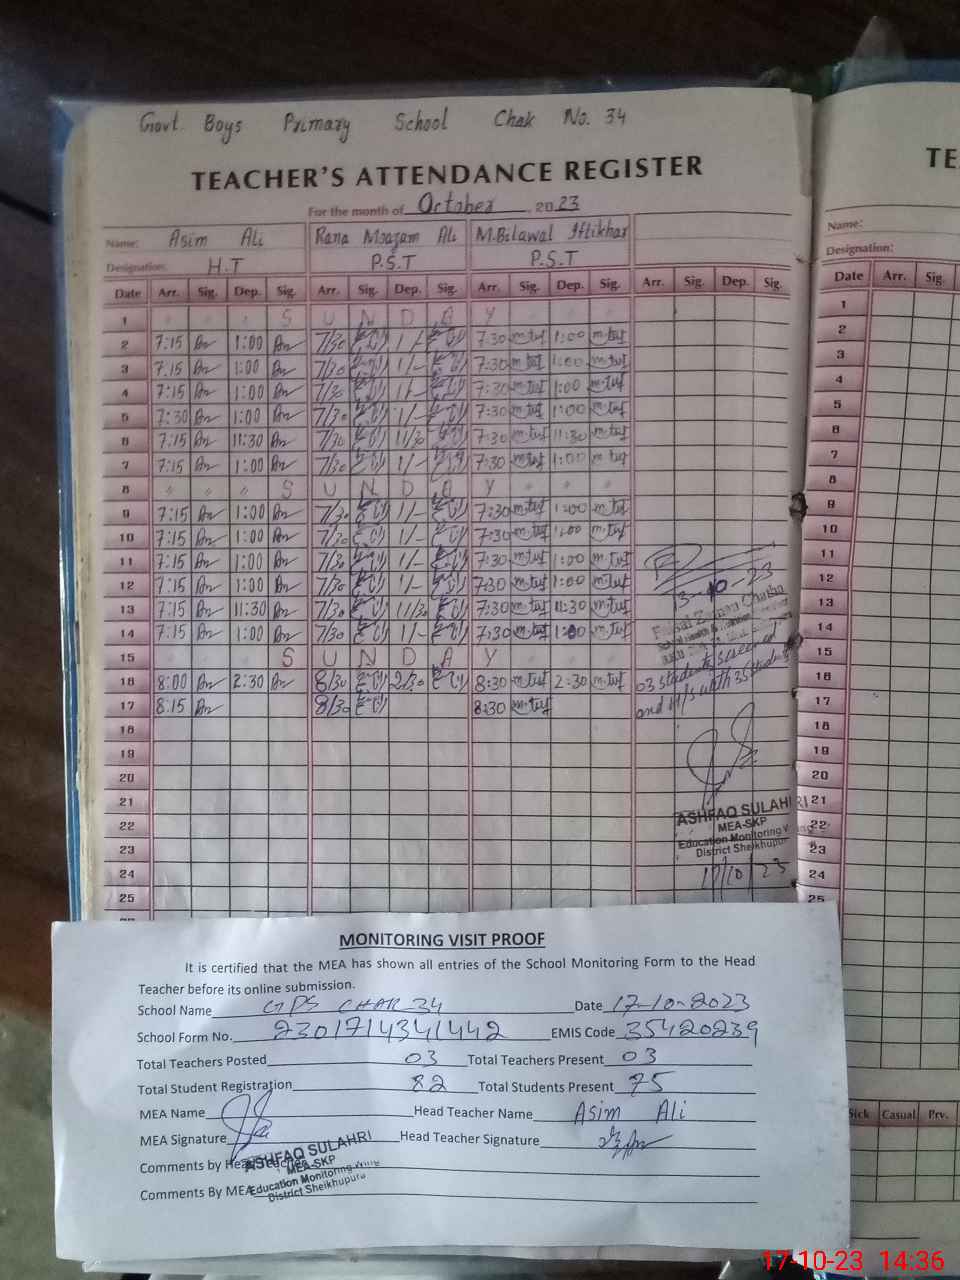 Govt. Boys Primary School Chak No. 34
TEACHER'S ATTENDANCE REGISTER
For the month of October, 2023
Name: Asim Ali Rana Moazam Ali M.Bilawal Iftikhar
Designation: H.T P.S.T P.S.T
Date Arr. Sig. Dep. Sig. Arr. Sig. Dep. Sig. Arr. Sig. Dep. Sig. Arr. Sig. Dep. Sig.
1 " " " S U N D A Y
2 7:15 1:00 7/30 1/- 7:30 1:00
3 7:15 1:00 7/30 1/- 7:30 1:00
4 7:15 1:00 7/30 1/- 7:30 1:00
5 7:30 1:00 7/30 1/- 7:30 1:00
6 7:15 11:30 7/30 11/30 7:30 11:30
7 7:15 1:00 7/30 1/- 7:30 1:00
8 " " " S U N D A Y " " "
9 7:15 1:00 7/30 1/- 7:30 1:00
10 7:15 1:00 7/30 1/- 7:30 1:00
11 7:15 1:00 7/30 1/- 7:30 1:00
12 7:15 1:00 7/30 1/- 7:30 1:00
13 7:15 11:30 7/30 11/30 7:30 11:30
14 7:15 1:00 7/30 1/- 7:30 1:00
15 S U N D A Y
16 8:00 2:30 8/30 2/30 8:30 2:30
17 8:15 8/30 8:30
18
19
20
21
22
23
24
25
13-10-23
03 students screened
and H/s with 35 students
ASHFAQ SULAHRI
MEA-SKP
Education Monitoring Wing
District Sheikhupura
17/10/23
TE
Name:
Designation:
Date Arr. Sig.
1
2
3
4
5
6
7
8
9
10
11
12
13
14
15
16
17
18
19
20
21
22
23
24
25
Sick Casual Prv.
MONITORING VISIT PROOF
It is certified that the MEA has shown all entries of the School Monitoring Form to the Head
Teacher before its online submission.
School Name GPS CHAK 34 Date 17-10-2023
School Form No. 2301714341442 EMIS Code 35420239
Total Teachers Posted 03 Total Teachers Present 03
Total Student Registration 82 Total Students Present 75
MEA Name Head Teacher Name Asim Ali
MEA Signature Head Teacher Signature
Comments by Head Teacher
Comments By MEA
ASHFAQ SULAHRI
MEA-SKP
Education Monitoring Wing
District Sheikhupura
17-10-23 14:36